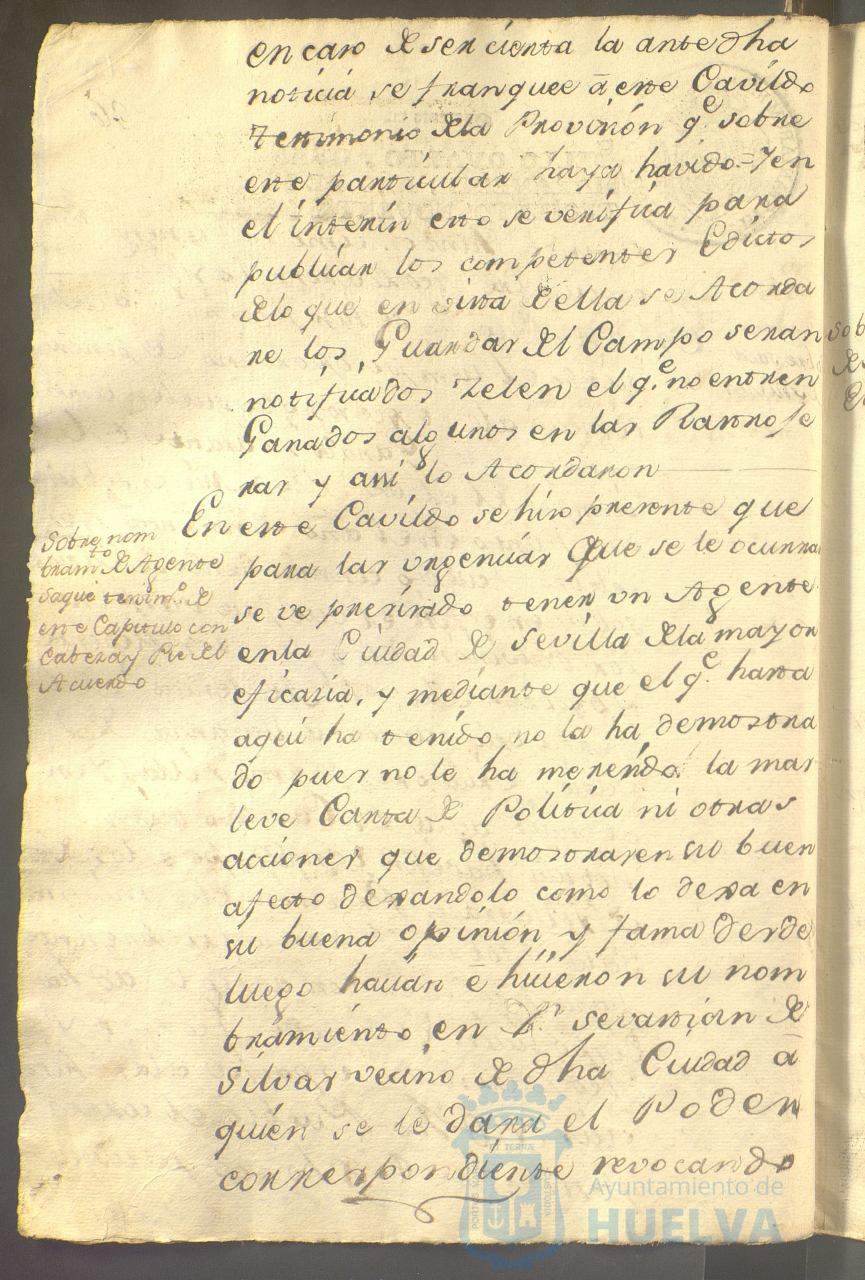 en caso de ser cierta la ante dha
noticia se franquee â este Cavildo
Testimonio dela Provision q.e sobre
este particular haya havido = Y en
el interin esto se verifica para
publicar los competentes Edictos
delo que en vista de ella se Acorda
re los Guardas del Campo seran
notificados zelen el q.e no entren
Ganados algunos en las Rastroje
ras y assi lo Acordaron
Sobre nom
bram.to de Agente
saque testim.o de
este Capitulo con
Cabeza y Pie del
Acuerdo
En este Cavildo se hizo presente que
para las urgencias que se le ocurran
se ve presisado tener un Agente
en la Ciudad de Sevilla dela mayor
eficasia, y mediante que el q.e hasta
aqui ha tenido no la ha demostra
do pues no le ha meresido la mas
leve Carta de Politica ni otras
acciones que demostrasen su buen
afecto dexandolo como lo dexa en
su buena opinion y fama desde
luego hacian ê hicieron su nom
bramiento en D.n Sevastian de
Silvar vecino de dha Ciudad â
quien se le dara el Poder
correspondiente revocando
Ayuntamiento de
HUELVA